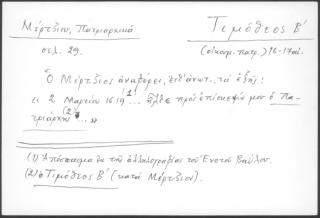 Μέρτζιου, Πατριαρχικά
Τιμόθεος Β΄
σελ. 29.
(οἰκουμ. πατρ.) 16-17αἰ.
Ὁ Μέρτζιος ἀναφέρει, τὰ ἑξῆς:
« 2 Μαρτίου 1619 (1)... ἦλθε πρὸς ἐπίσκεψίν μου ὁ Πα-
τριάρχης (2)... »
(1) Ἀπόσπασμα ἐκ τῆς ἀλληλογραφίας τοῦ Ἑνετοῦ Βαΐλου.
(2) ὁ Τιμόθεος Β΄ (κατὰ Μέρτζιον).